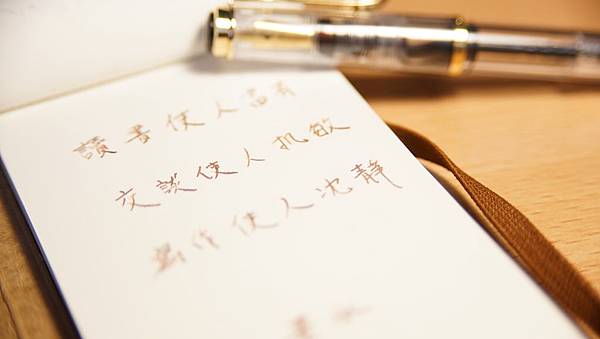 讀書使人富有
交談使人机敏
寫作使人沈靜